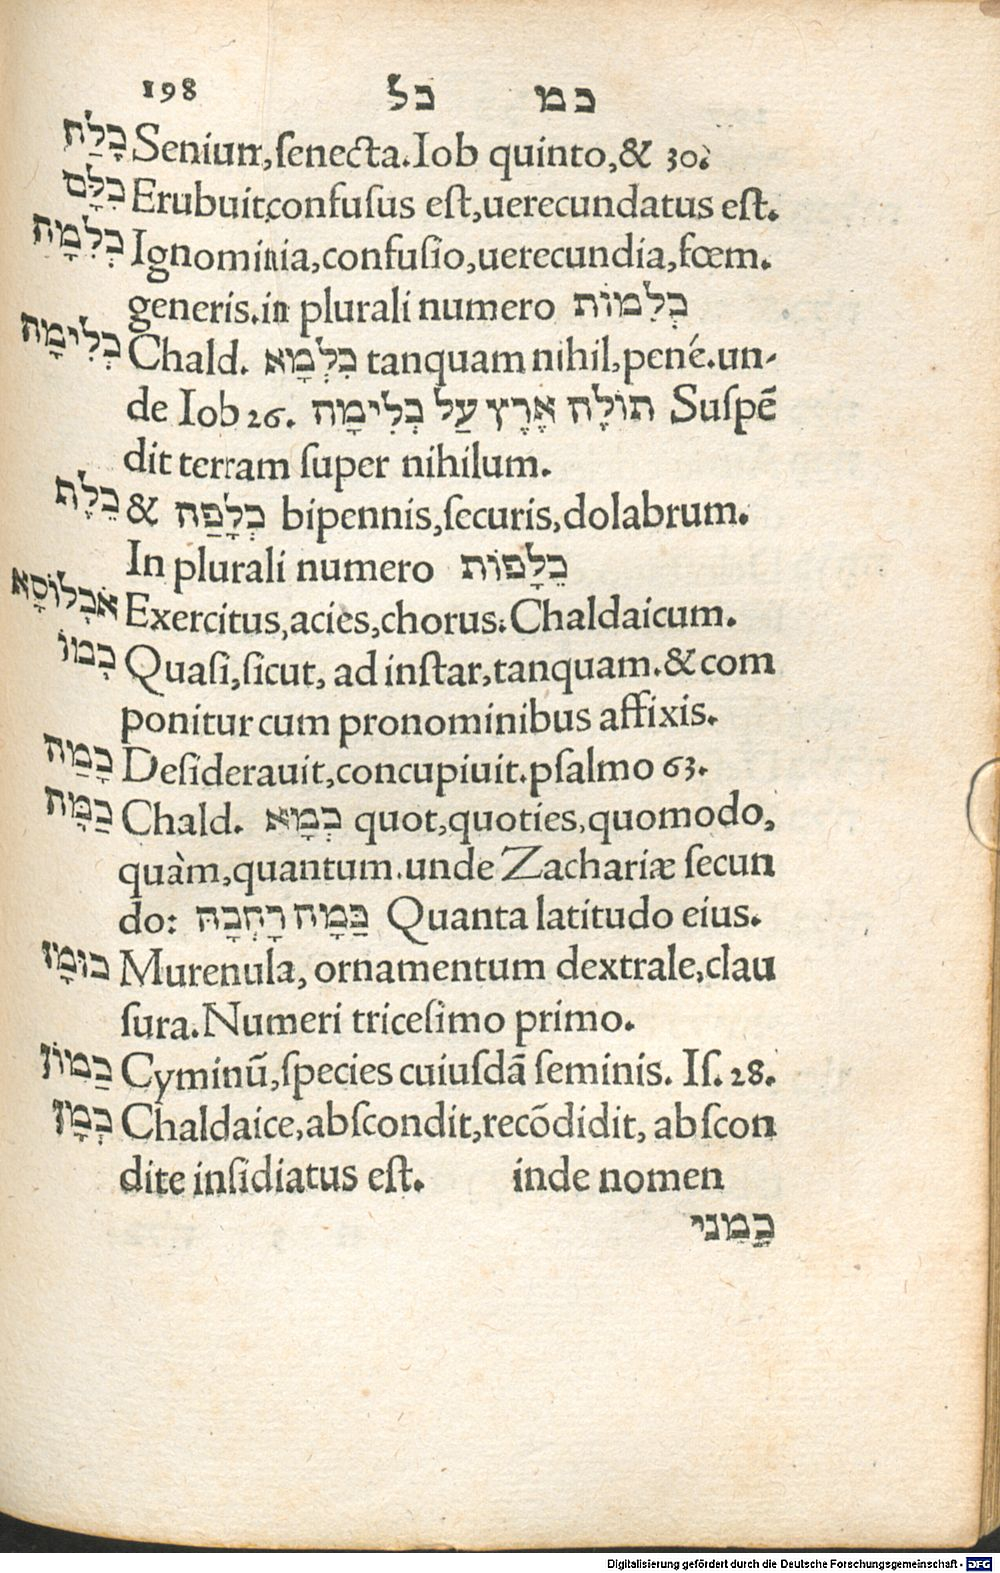 198 כל כמ
כָּלַח Senium,ſenecta.Iob quinto,& 30.
כִּלָּם Erubuit,confuſus eſt,uerecundatus eſt.
כְּלִמָּה Ignominia,confuſio,uerecundia,fœm.
generis.in plurali numero כְּלִמּוֹת
כְּלִימָה Chald. כִּלְמָא tanquam nihil,pené.un-
de Iob 26. תוֹלֶה אֶרֶץ עַל בְּלִימָה Suſpē
dit terram ſuper nihilum.
כֵּלֶת & כְלָפַּה bipennis,ſecuris,dolabrum.
In plurali numero כֵּלָפּוֹת
אֹכְלוֹסָא Exercitus,acies,chorus.Chaldaicum.
כְּמוֹ Quaſi,ſicut, ad inſtar,tanquam.& com
ponitur cum pronominibus affixis.
כָּמַהּ Deſiderauit,concupiuit.pſalmo 63.
כַּמָּה Chald. כְּמָא quot,quoties,quomodo,
quàm,quantum.unde Zachariæ ſecun
do: כַּמָּה רָחְבָּהּ Quanta latitudo eius.
כּוּמָז Murenula, ornamentum dextrale,clau
ſura.Numeri triceſimo primo.
כַּמּוֹן Cyminū,ſpecies cuiuſdā ſeminis. Iſ.28.
כְּמָן Chaldaice,abſcondit,recōdidit, abſcon
dite inſidiatus eſt. inde nomen
כָּמַנִי
Digitalisierung gefördert durch die Deutsche Forschungsgemeinschaft - DFG